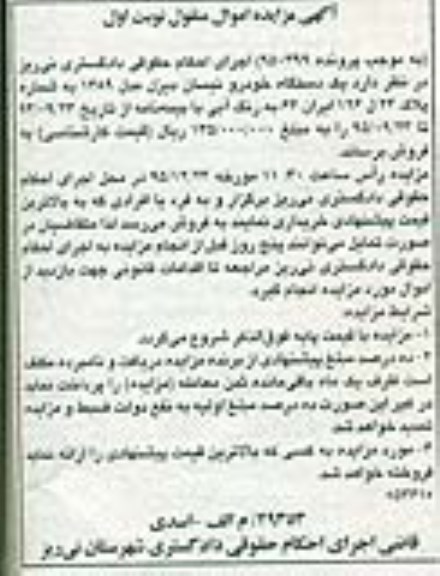 آگهی مزایده اموال منقول نوبت اول
(به موجب پرونده ۹۵۰۲۹۹) اجرای احکام حقوقی دادگستری نی‌ریز
در نظر دارد یک دستگاه خودرو نیسان مدل سال ۱۳۸۹ به شماره
پلاک ایران به رنگ آبی با بیمه‌نامه از تاریخ
تا را به مبلغ ۱۳۵/۰۰۰/۰۰۰ ریال (قیمت کارشناسی) به
فروش برساند.
مزایده رأس ساعت ۱۱:۳۰ مورخه در محل اجرای احکام
حقوقی دادگستری نی‌ریز برگزار و به فرد یا افرادی که به بالاترین
قیمت پیشنهادی خریداری نمایند به فروش می‌رسد لذا متقاضیان در
صورت تمایل می‌توانند پنج روز قبل از انجام مزایده به اجرای احکام
حقوقی دادگستری نی‌ریز مراجعه تا اقدامات قانونی جهت بازدید از
اموال مورد مزایده انجام گیرد.
شرایط مزایده:
۱- مزایده با قیمت پایه فوق‌الذکر شروع می‌گردد.
۲- ده درصد مبلغ پیشنهادی از برنده مزایده دریافت و نامبرده مکلف
است ظرف یک ماه باقی‌مانده ثمن معامله (مزایده) را پرداخت نماید
در غیر این صورت ده درصد مبلغ اولیه به نفع دولت ضبط و مزایده
تجدید خواهد شد.
۳- مورد مزایده به کسی که بالاترین قیمت پیشنهادی را ارائه نماید
فروخته خواهد شد.
۲۹۳۵۳/م الف - اسدی
قاضی اجرای احکام حقوقی دادگستری شهرستان نی‌ریز